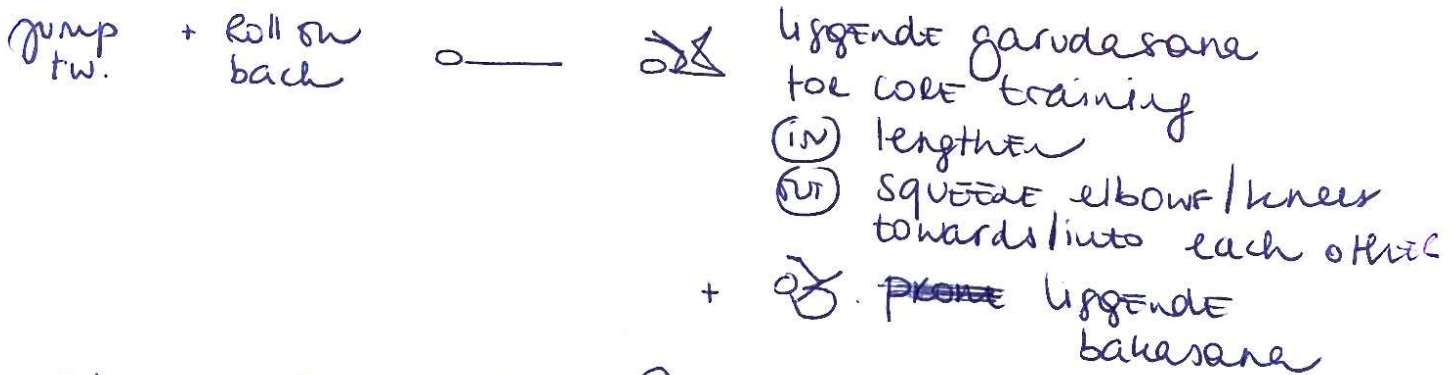 jump + Roll on
tw. back
liggende garudasana
for CORE training
(IN) lengthen
(OUT) SQUEEZE elbows/knees
towards/into each other
+ liggende
bakasana